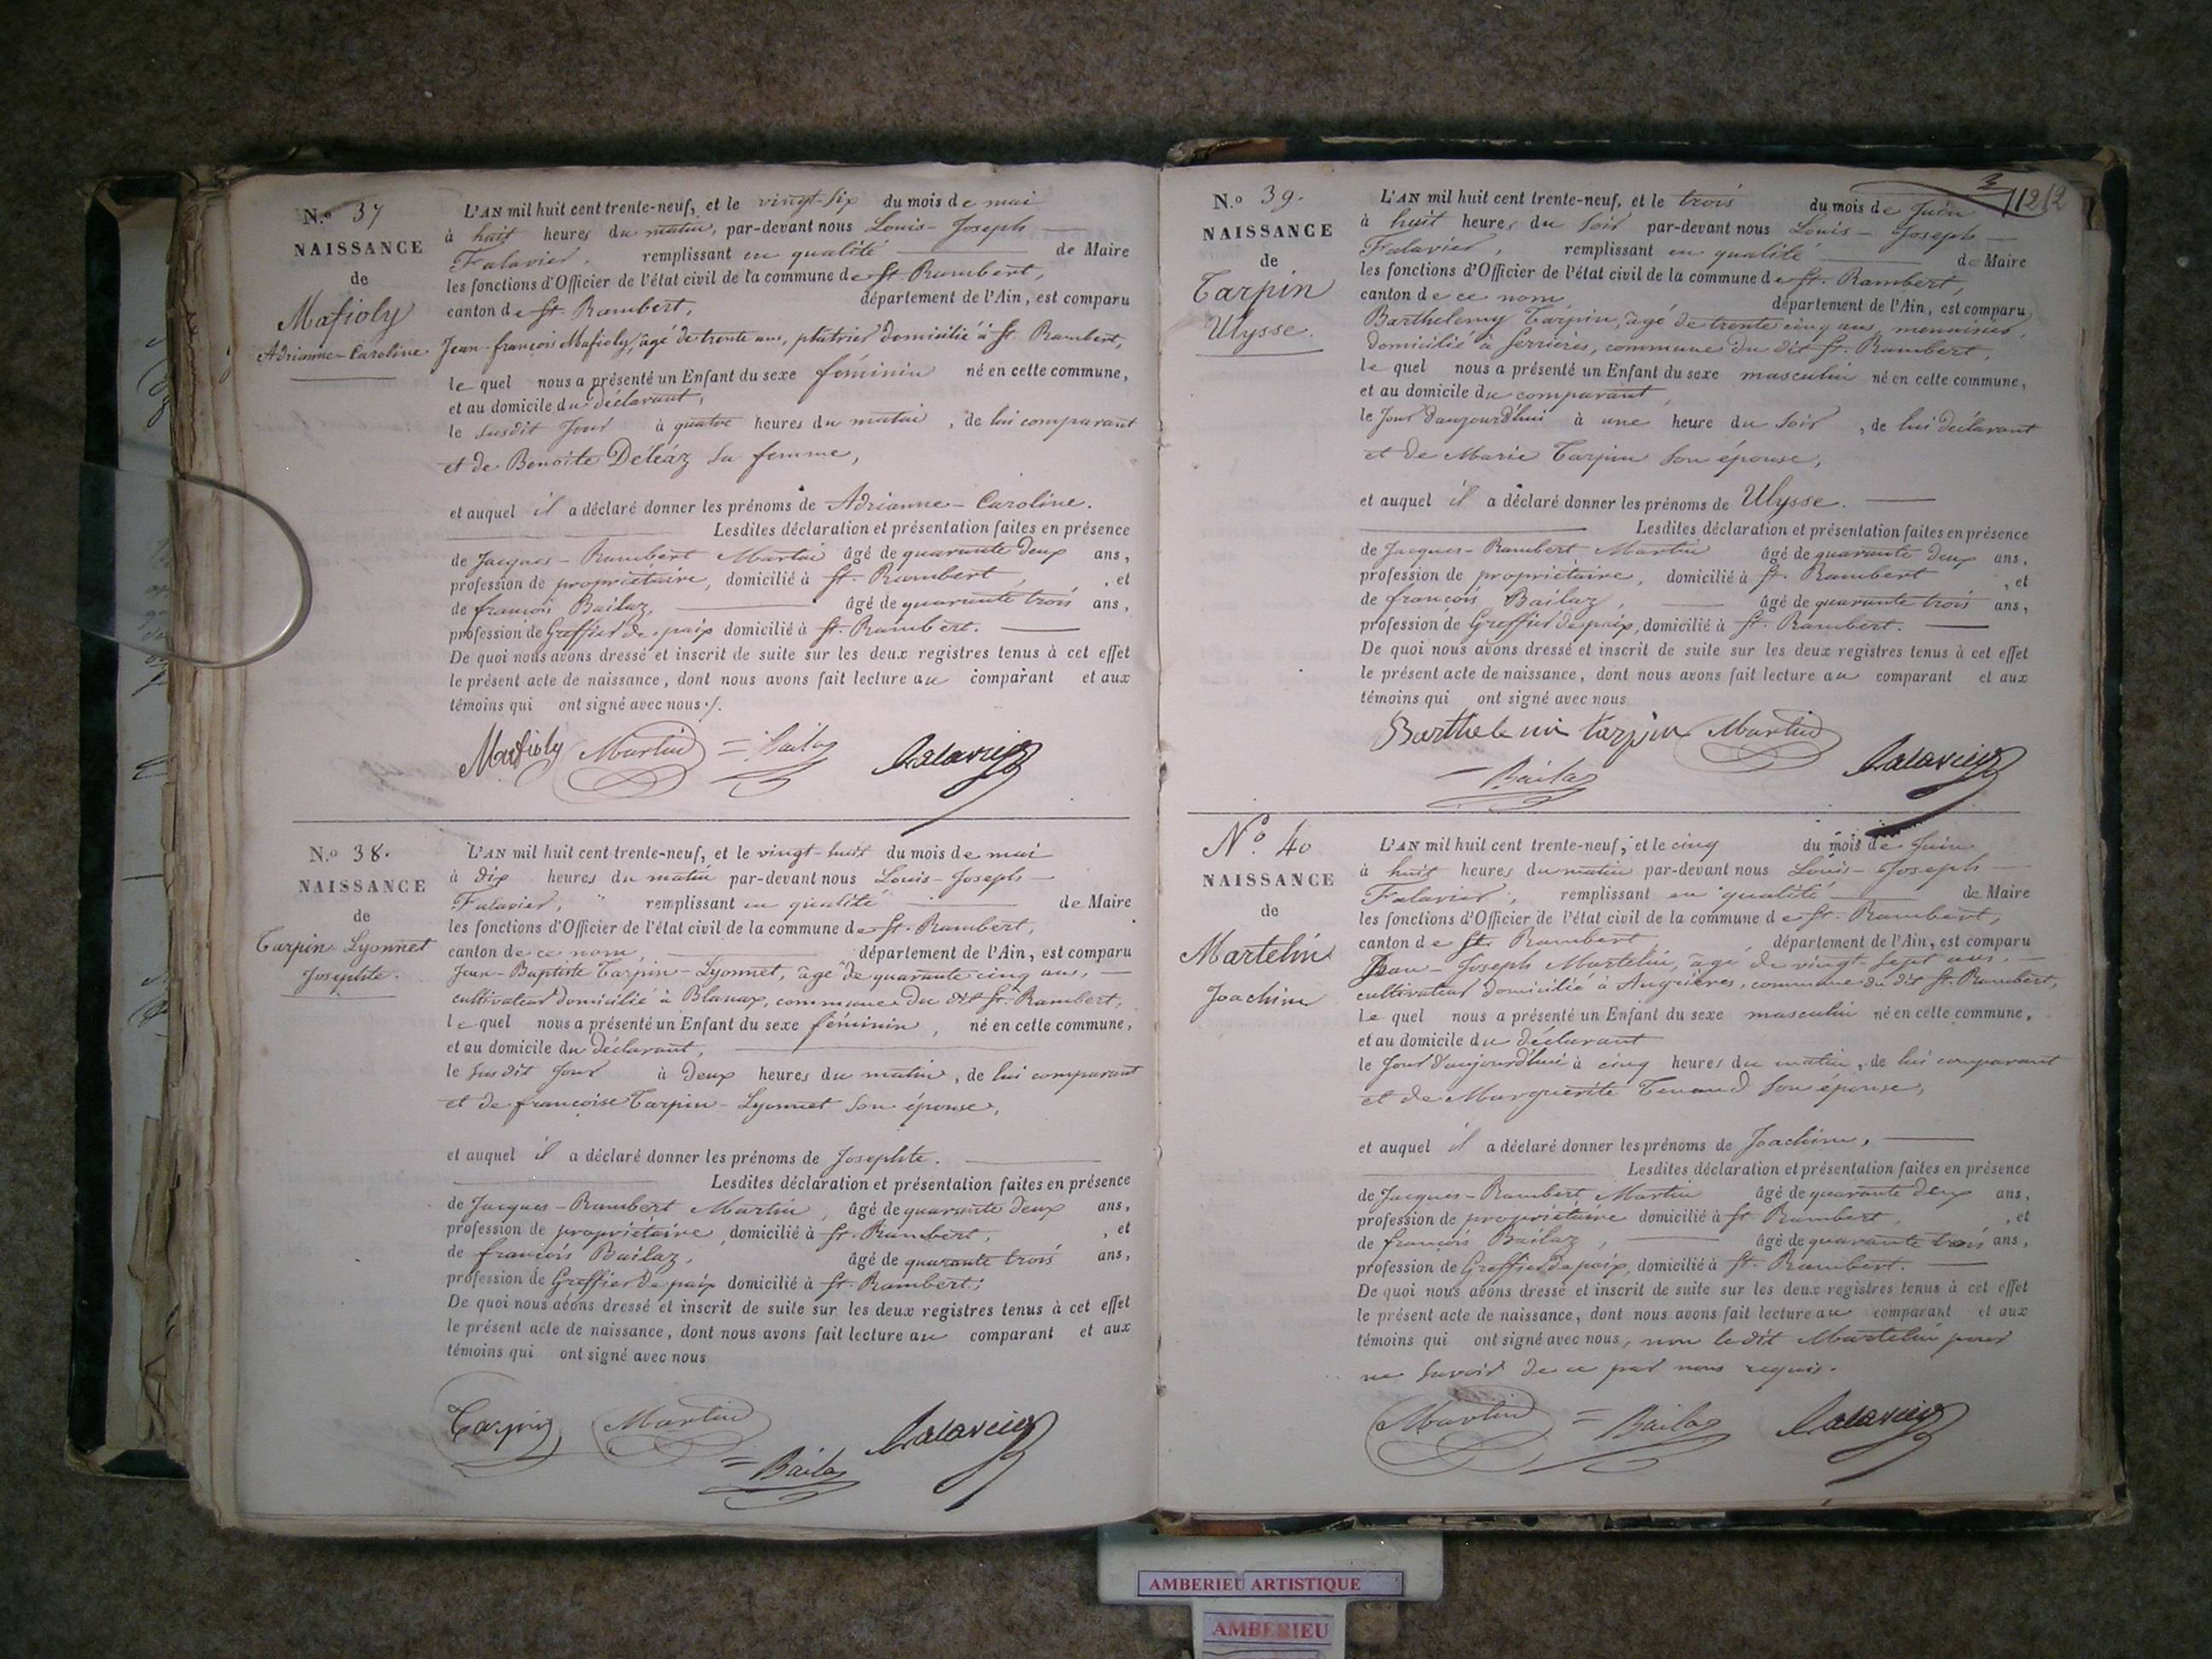 N.º 37
NAISSANCE
de
Mafioly
Adrianne-Caroline
L'AN mil huit cent trente-neuf, et le vingt-six du mois de mai
à huit heures du matin, par-devant nous Louis-Joseph
Falavier, remplissant en qualité de Maire
les fonctions d'Officier de l'état civil de la commune de St. Rambert,
canton de St. Rambert, département de l'Ain, est comparu
Jean-françois Mafioly, âgé de trente ans, plâtrier domicilié à St. Rambert,
lequel nous a présenté un Enfant du sexe féminin né en cette commune,
et au domicile du déclarant,
le susdit jour à quatre heures du matin, de lui comparant
et de Benoite Deléaz sa femme,
et auquel il a déclaré donner les prénoms de Adrianne-Caroline.
Lesdites déclaration et présentation faites en présence
de Jacques-Rambert Martin âgé de quarante deux ans,
profession de propriétaire, domicilié à St. Rambert, et
de françois Bailaz, âgé de quarante trois ans,
profession de Greffier de paix domicilié à St. Rambert.
De quoi nous avons dressé et inscrit de suite sur les deux registres tenus à cet effet
le présent acte de naissance, dont nous avons fait lecture au comparant et aux
témoins qui ont signé avec nous ./.
Mafioly Martin = Bailaz Falavier
N.º 38.
NAISSANCE
de
Tarpin-Lyonnet
Josephte.
L'AN mil huit cent trente-neuf, et le vingt-huit du mois de mai
à dix heures du matin par-devant nous Louis-Joseph
Falavier, remplissant en qualité de Maire
les fonctions d'Officier de l'état civil de la commune de St. Rambert,
canton de ce nom, département de l'Ain, est comparu
Jean-Baptiste Tarpin-Lyonnet, âgé de quarante cinq ans,
cultivateur domicilié à Blanaz, commune du dit St. Rambert,
lequel nous a présenté un Enfant du sexe féminin, né en cette commune,
et au domicile du déclarant,
le susdit jour à deux heures du matin, de lui comparant
et de françoise Tarpin-Lyonnet son épouse,
et auquel il a déclaré donner les prénoms de Josephte.
Lesdites déclaration et présentation faites en présence
de Jacques-Rambert Martin, âgé de quarante deux ans,
profession de propriétaire, domicilié à St. Rambert, , et
de françois Bailaz, âgé de quarante trois ans,
profession de Greffier de paix domicilié à St. Rambert;
De quoi nous avons dressé et inscrit de suite sur les deux registres tenus à cet effet
le présent acte de naissance, dont nous avons fait lecture au comparant et aux
témoins qui ont signé avec nous
Tarpin Martin Falavier
= Bailaz
112
N.º 39.
NAISSANCE
de
Tarpin
Ulysse.
L'AN mil huit cent trente-neuf, et le trois du mois de Juin
à huit heures du soir par-devant nous Louis-Joseph
Falavier, remplissant en qualité de Maire
les fonctions d'Officier de l'état civil de la commune de St. Rambert,
canton de ce nom, département de l'Ain, est comparu
Barthelemy Tarpin, âgé de trente cinq ans, menuisier,
domicilié à Serrières, commune du dit St. Rambert,
lequel nous a présenté un Enfant du sexe masculin né en cette commune,
et au domicile du comparant,
le jour d'aujourd'hui à une heure du soir, de lui déclarant
et de Marie Tarpin son épouse,
et auquel il a déclaré donner les prénoms de Ulysse.
Lesdites déclaration et présentation faites en présence
de Jacques-Rambert Martin âgé de quarante deux ans,
profession de propriétaire, domicilié à St. Rambert, et
de françois Bailaz, âgé de quarante trois ans,
profession de Greffier de paix, domicilié à St. Rambert.
De quoi nous avons dressé et inscrit de suite sur les deux registres tenus à cet effet
le présent acte de naissance, dont nous avons fait lecture au comparant et aux
témoins qui ont signé avec nous
Barthelemi tarpin Martin
= Bailaz Falavier
N.º 40
NAISSANCE
de
Martelin
Joachim
L'AN mil huit cent trente-neuf, et le cinq du mois de Juin
à huit heures du matin par-devant nous Louis-Joseph
Falavier, remplissant en qualité de Maire
les fonctions d'Officier de l'état civil de la commune de St. Rambert,
canton de St. Rambert département de l'Ain, est comparu
Jean-Joseph Martelin, âgé de vingt-sept ans,
cultivateur domicilié à Angrières, commune du dit St. Rambert,
Lequel nous a présenté un Enfant du sexe masculin né en cette commune,
et au domicile du déclarant
le jour d'aujourd'hui à cinq heures du matin, de lui comparant
et de Marguerite Tenand son épouse,
et auquel il a déclaré donner les prénoms de Joachim,
Lesdites déclaration et présentation faites en présence
de Jacques-Rambert Martin âgé de quarante deux ans,
profession de propriétaire domicilié à St. Rambert, , et
de françois Bailaz, âgé de quarante trois ans,
profession de Greffier de paix, domicilié à St. Rambert.
De quoi nous avons dressé et inscrit de suite sur les deux registres tenus à cet effet
le présent acte de naissance, dont nous avons fait lecture au comparant et aux
témoins qui ont signé avec nous, non le dit Martelin pour
ne savoir de ce par nous requis.
Martin = Bailaz Falavier
AMBERIEU ARTISTIQUE
AMBERIEU